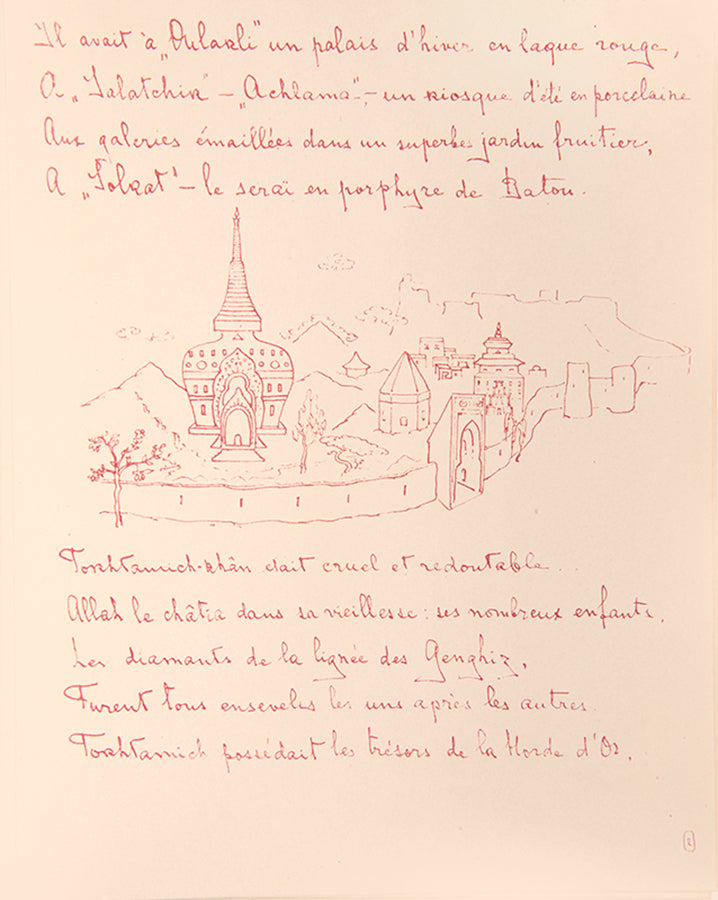 Il avait à „Oulakli" un palais d'hiver en laque rouge,
A „Salatchik" – „Achlama", – un kiosque d'été en porcelaine
Aux galeries émaillées dans un superbes jardin fruitier,
A „Solkat" – le seraï en porphyre de Batou.
Tokhtamich-khân était cruel et redoutable...
Allah le châtia dans sa vieillesse: ses nombreux enfants,
Les diamants de la lignée des Genghiz,
Furent tous ensevelis les uns après les autres.
Tokhtamich possédait les trésors de la Horde d'Or,
2